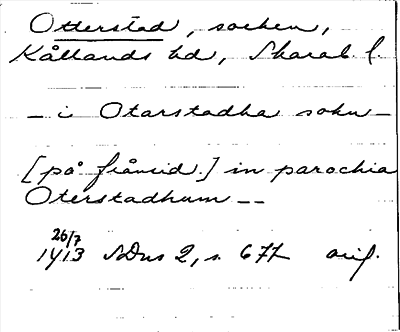 Otterstad, socken,
Kållands hd, Skarab. l.
— i Otarstadha sokn —
[på frånsid.] in parochia
Oterstadhum — —
26/7
1413 SDns 2, s. 677 orig.